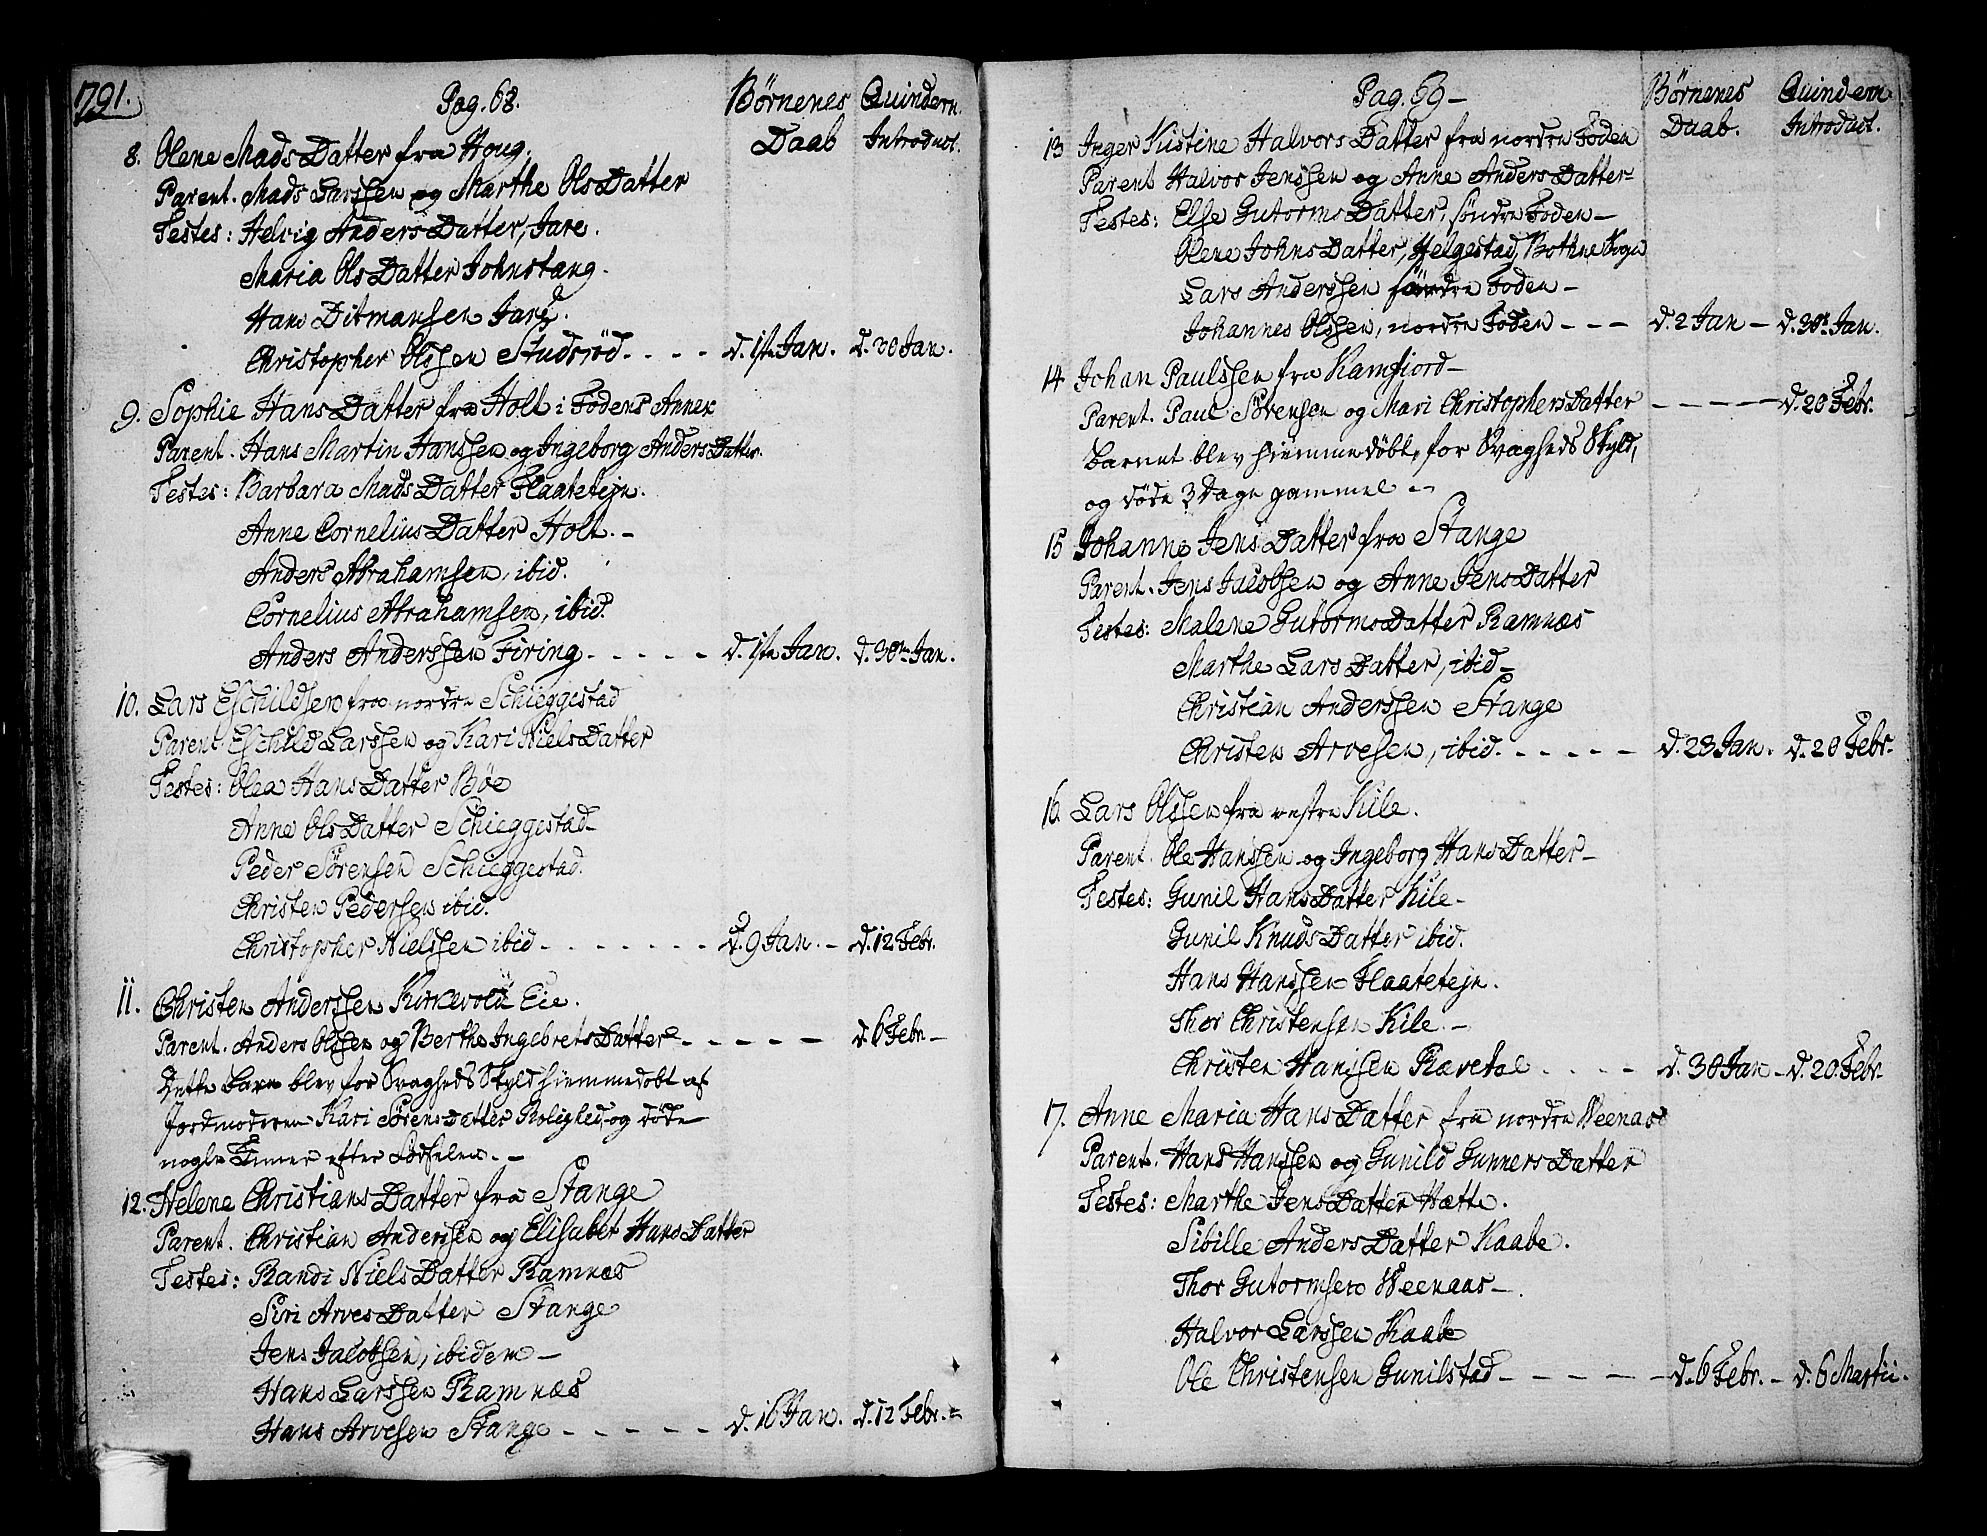 1791.
Pag. 68.
Börnenes Daab
Quindern. Introduct.
8. Olene Mads Datter fra Houg.
Parent. Mads Larssen og Marthe Ols Datter
Testes: Helvig Anders Datter, Jare.
Maria Ols Datter Johnstang.
Hans Ditmansen Jare.
Christopher Olssen Studsröd. - - - - d. 1ste Jan. d. 30 Jan.
9. Sophie Hans Datter fra Holt i Fodens Annex
Parent. Hans Martin Hanssen og Ingeborg Anders Datter.
Testes: Barbara Mads Datter Flaatetejn.
Anne Cornelius Datter Holt. -
Anders Abrahamsen, ibid.
Cornelius Abrahamsen, ibid.
Anders Anderssen Firing - - - - - d. 1ste Jan. d. 30te Jan.
10. Lars Eschildsen fra nordre Schieggestad
Parent. Eschild Larssen og Kari Niels Datter
Testes: Olea Hans Datter Böe
Anne Ols Datter Schieggestad
Peder Sörensen Schieggestad.
Christen Pedersen ibid.
Christopher Nielssen ibid - - - - - - - d. 9 Jan. - d. 12 Febr.
11. Christen Anderssen Kirkevold Eie.
Parent. Anders Olssen og Berthe Ingebrets Datter - - - - - d. 6 Febr -
Dette Barn blev for Svagheds Skyld hiemmedöbt af
Jordmoderen Kari Sörens Datter Rolighed, og döde
nogle Timer efter Födselen. -
12. Helene Christians Datter fra Stange
Parent. Christian Anderssen og Elisabet Hans Datter
Testes: Randi Niels Datter Ramnæs
Siri Arves Datter Stange
Jens Jacobsen, ibidem -
Hans Larssen Ramnæs
Hans Arvesen Stange - - - - - d. 16 Jan. d. 12 Febr. -
Pag. 69 -
Börnenes Daab.
Quindern Introduct.
13 Inger Kistine Halvors Datter fra nordre Foden
Parent Halvor Jenssen og Anne Anders Datter -
Testes: Else Gutorms Datter, söndre Foden -
Olene Johns Datter, Helgestad, Bothne Sogn
Lars Anderssen söndre Foden -
Johannes Olssen, nordre Foden - - - d. 2 Jan - d. 30te Jan.
14 Johan Paulssen fra Kamfiord -
Parent. Paul Sörensen og Mari Christophers Datter - - - - d. 20 Febr.
Barnet blev hiemmedöbt, for Svagheds Skyld,
og döde 3 Dage gammel -
15 Johanne Jens Datter fra Stange
Parent. Jens Jacobsen og Anne Jens Datter
Testes: Malene Gutorms Datter Ramnæs
Marthe Lars Datter, ibid -
Christian Anderssen Stange
Christen Arvesen, ibid. - - - - - d. 23 Jan. d. 20 Febr.
16. Lars Olssen fra vestre Kile.
Parent. Ole Hanssen og Ingeborg Hans Datter -
Testes: Gunil Hans Datter Kile -
Gunil Knuds Datter ibid.
Hans Hanssen Flaatetejn.
Thor Christensen Kile. -
Christen Hanssen Rævedal - - - - d. 30 Jan - d. 20. Febr.
17. Anne Maria Hans Datter fra nordre Weenaas
Parent. Hans Hanssen og Gunild Gunners Datter
Testes: Marthe Jens Datter Hætte.
Sibille Anders Datter Kaabe.
Thor Gutormsen Weenaas -
Halvor Larssen Kaabe
Ole Christensen Gunilstad - - - - - - d. 6 Febr. - d. 6 Martii.